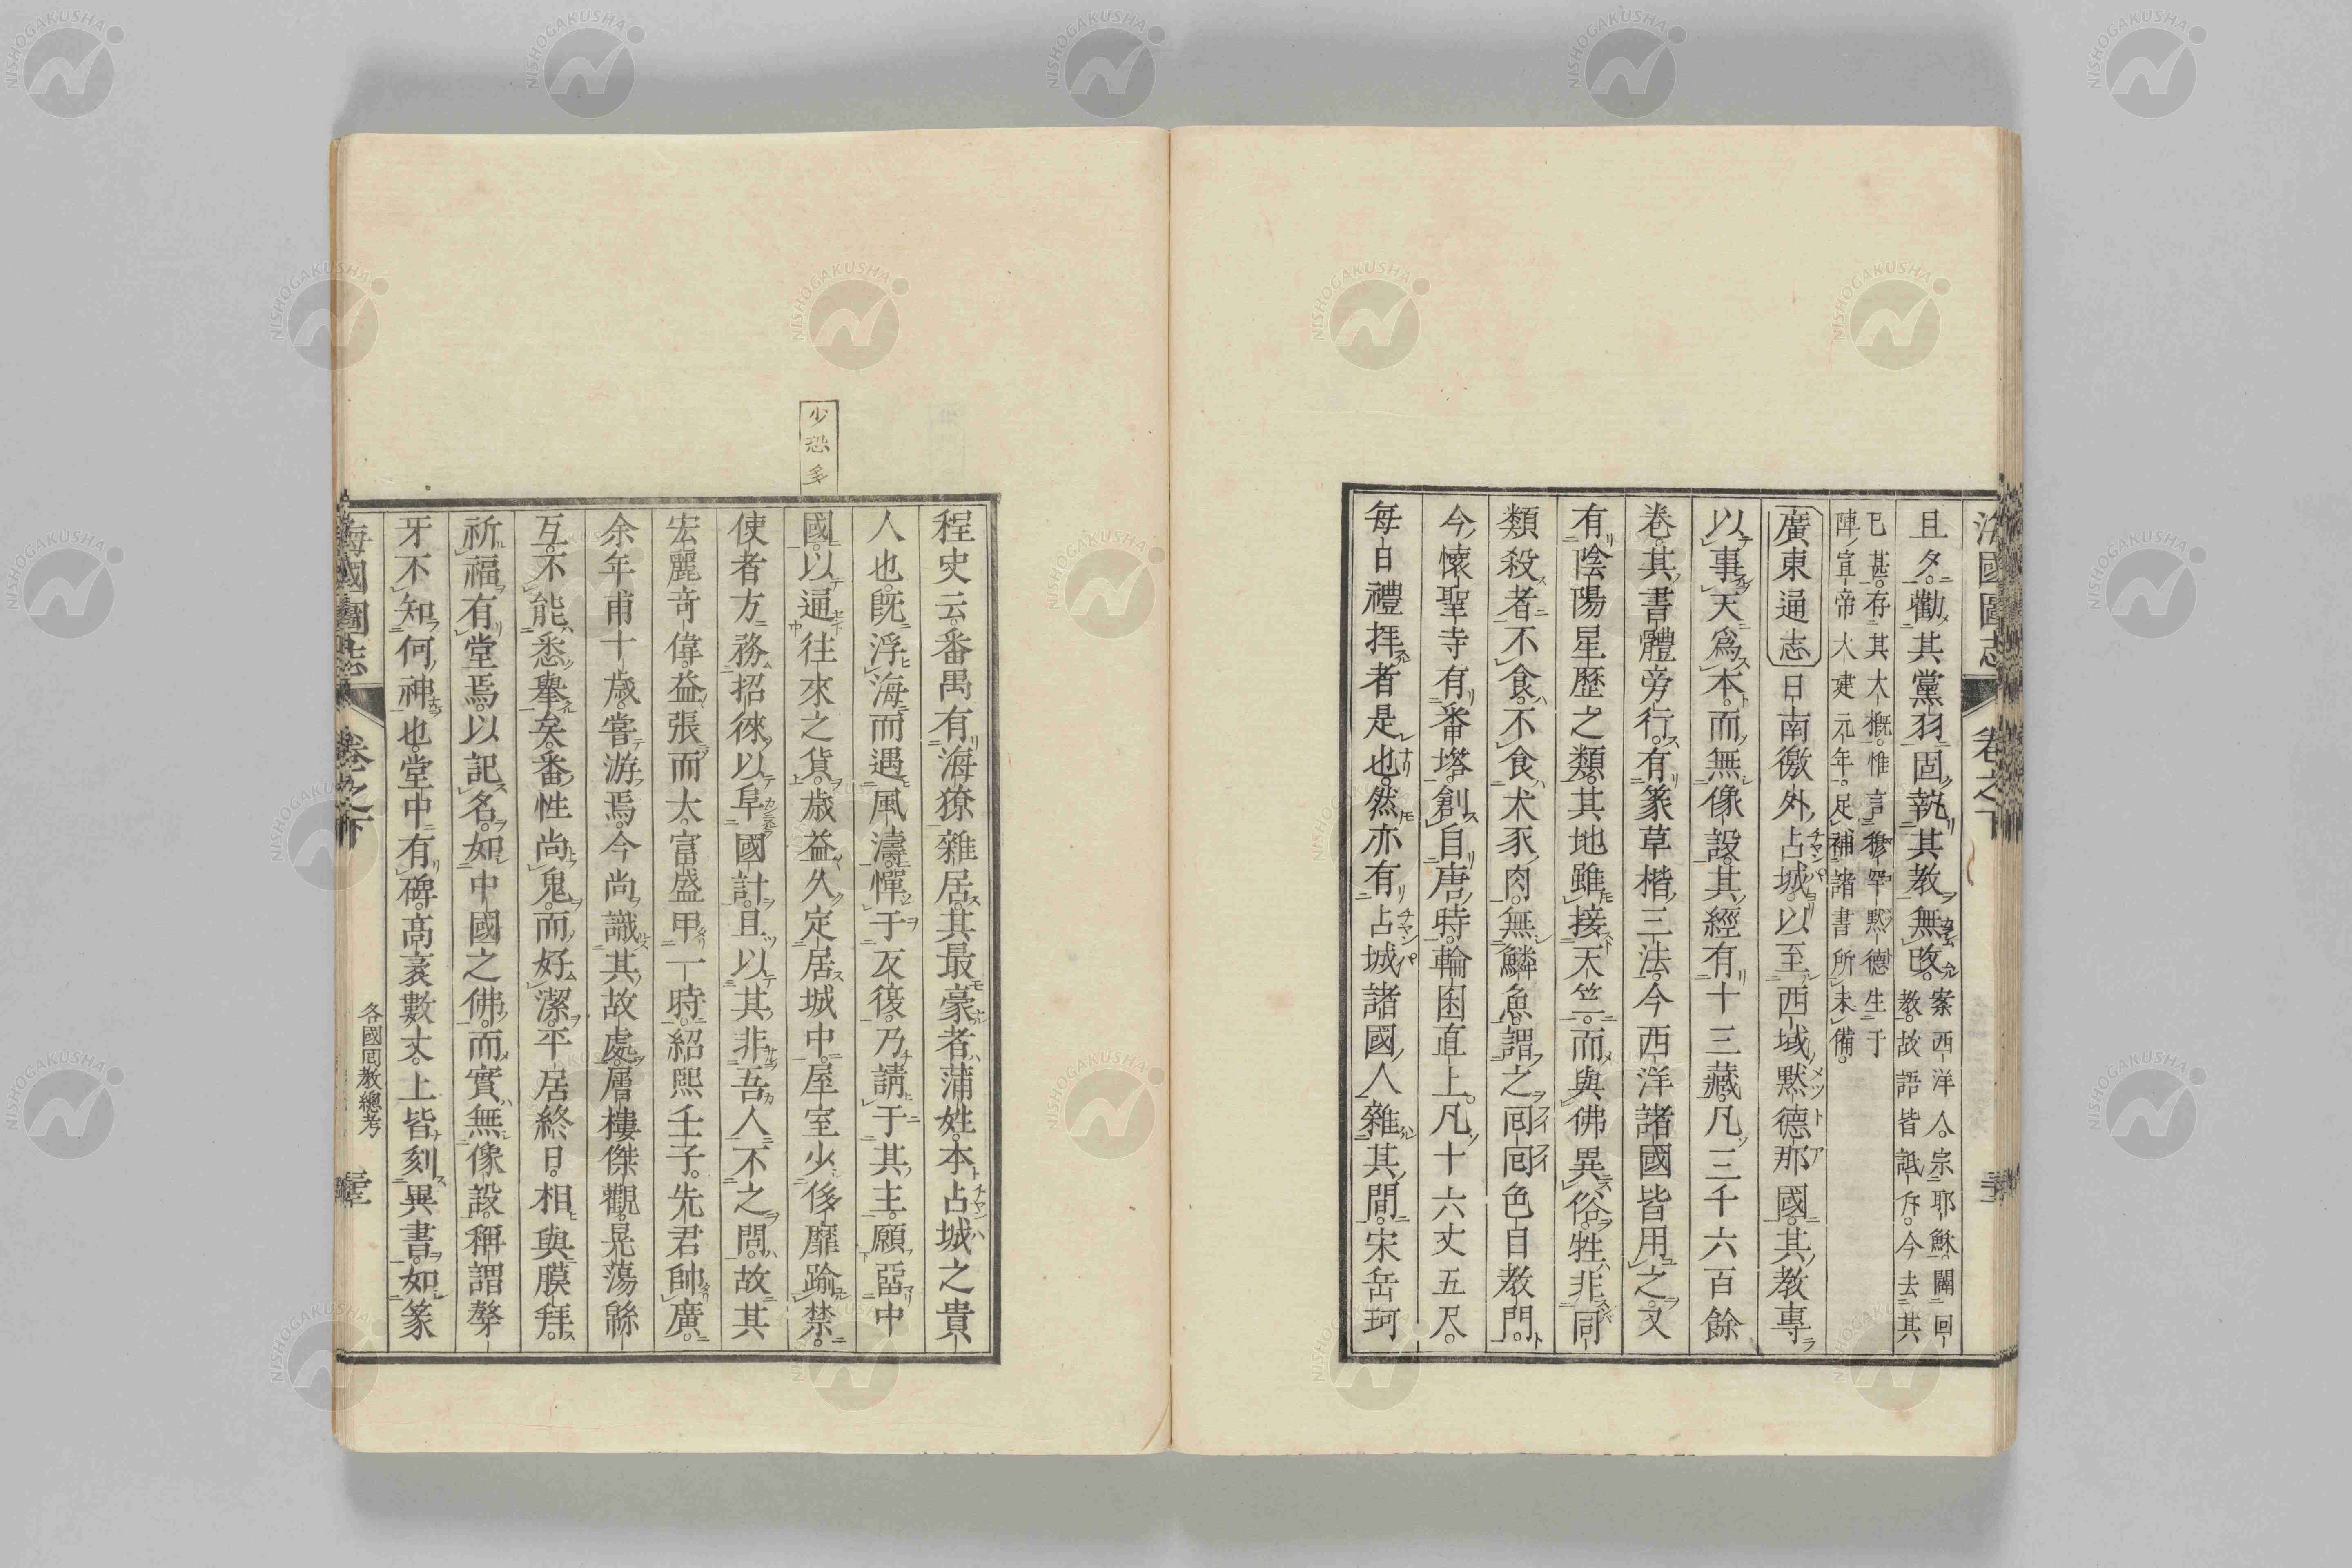 海國圖志 卷之下
且夕勸其黨羽固執其教無改
案西洋人宗耶穌闢回
教故語皆詆斥今去其
已甚存其大概惟言穆罕默德生于
陣宣帝大建元年足補諸書所未備
廣東通志曰南徼外占城以至西域黙德那國其教專
以事天爲本而無像設其經有十三藏凡三千六百餘
卷其書體旁行有篆草楷三法今西洋諸國皆用之又
有陰陽星歷之類其地雖接天竺而與佛異俗牲非同
類殺者不食不食犬豕肉無鱗魚謂之囘囘色目教門
今懷聖寺有番塔創自唐時輪囷直上凡十六丈五尺
每日禮拜者是也然亦有占城諸國人雜其間宋岳珂
程史云番禺有海獠雜居其最豪者蒲姓本占城之貴
人也旣浮海而遇風濤憚于反復乃請于其主願留中
國以通往來之貨歲益久定居城中屋室少侈靡踰禁
使者方務招徠以阜國計且以其非吾人不之問故其
宏麗奇偉益張而大富盛甲一時紹熙壬子先君帥廣
余年甫十歲嘗游焉今尚識其故處層樓傑觀晃蕩緜
互不能悉舉矣番性尚鬼而好潔平居終日相與膜拜
祈福有堂焉以記名如中國之佛而實無像設稱謂聱
牙不知何神也堂中有碑高袤數丈上皆刻異書如篆
少恐多
海國圖志 卷之下 各國囘教總考